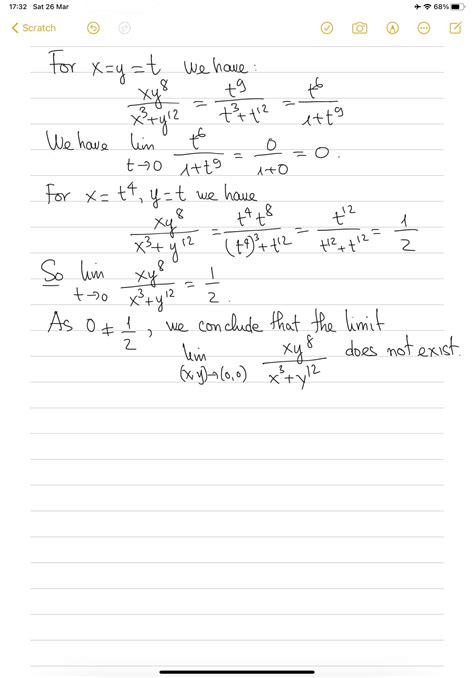 17:32 Sat 26 Mar 68%
Scratch
For x=y=t we have:
xy⁸/(x³+y¹²) = t⁹/(t³+t¹²) = t⁶/(1+t⁹)
We have lim t→0 t⁶/(1+t⁹) = 0/(1+0) = 0.
For x= t⁴, y=t we have
xy⁸/(x³+y¹²) = t⁴t⁸/((t⁴)³+t¹²) = t¹²/(t¹²+t¹²) = 1/2
So lim t→0 xy⁸/(x³+y¹²) = 1/2.
As 0 ≠ 1/2, we conclude that the limit
lim (x,y)→(0,0) xy⁸/(x³+y¹²) does not exist.